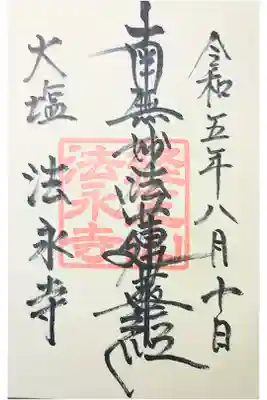 令和五年八月十日
南無妙法蓮華経
大塩
法永寺